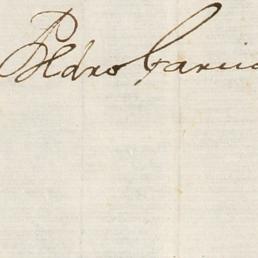 Pedro Garcia